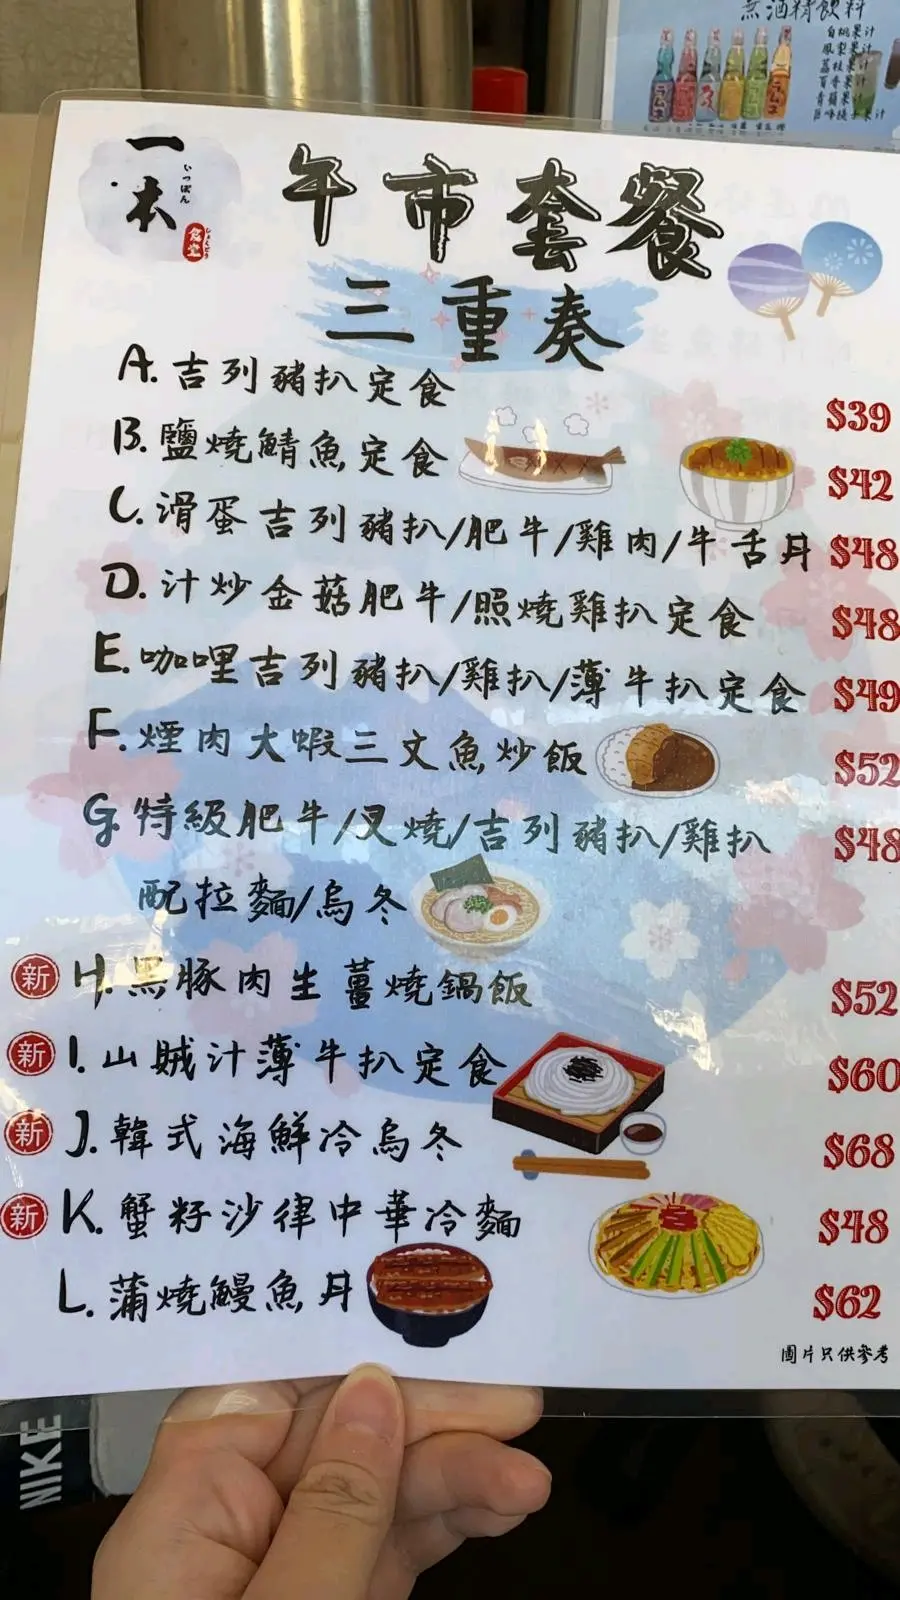 無酒精飲料
白桃果汁
鳳梨果汁
ラムネ
一本
いっぽん
食堂
しょくどう
午市套餐
三重奏
A. 吉列豬扒定食 $39
B. 鹽燒鯖魚定食 $42
C. 滑蛋吉列豬扒/肥牛/雞肉/牛舌丼 $48
D. 汁炒金菇肥牛/照燒雞扒定食 $48
E. 咖哩吉列豬扒/雞扒/薄牛扒定食 $49
F. 煙肉大蝦三文魚炒飯 $52
G. 特級肥牛/叉燒/吉列豬扒/雞扒 $48
配拉麵/烏冬
新 H. 黑豚肉生薑燒鍋飯 $52
新 I. 山賊汁薄牛扒定食 $60
新 J. 韓式海鮮冷烏冬 $68
新 K. 蟹籽沙律中華冷麵 $48
L. 蒲燒鰻魚丼 $62
圖片只供參考
NIKE